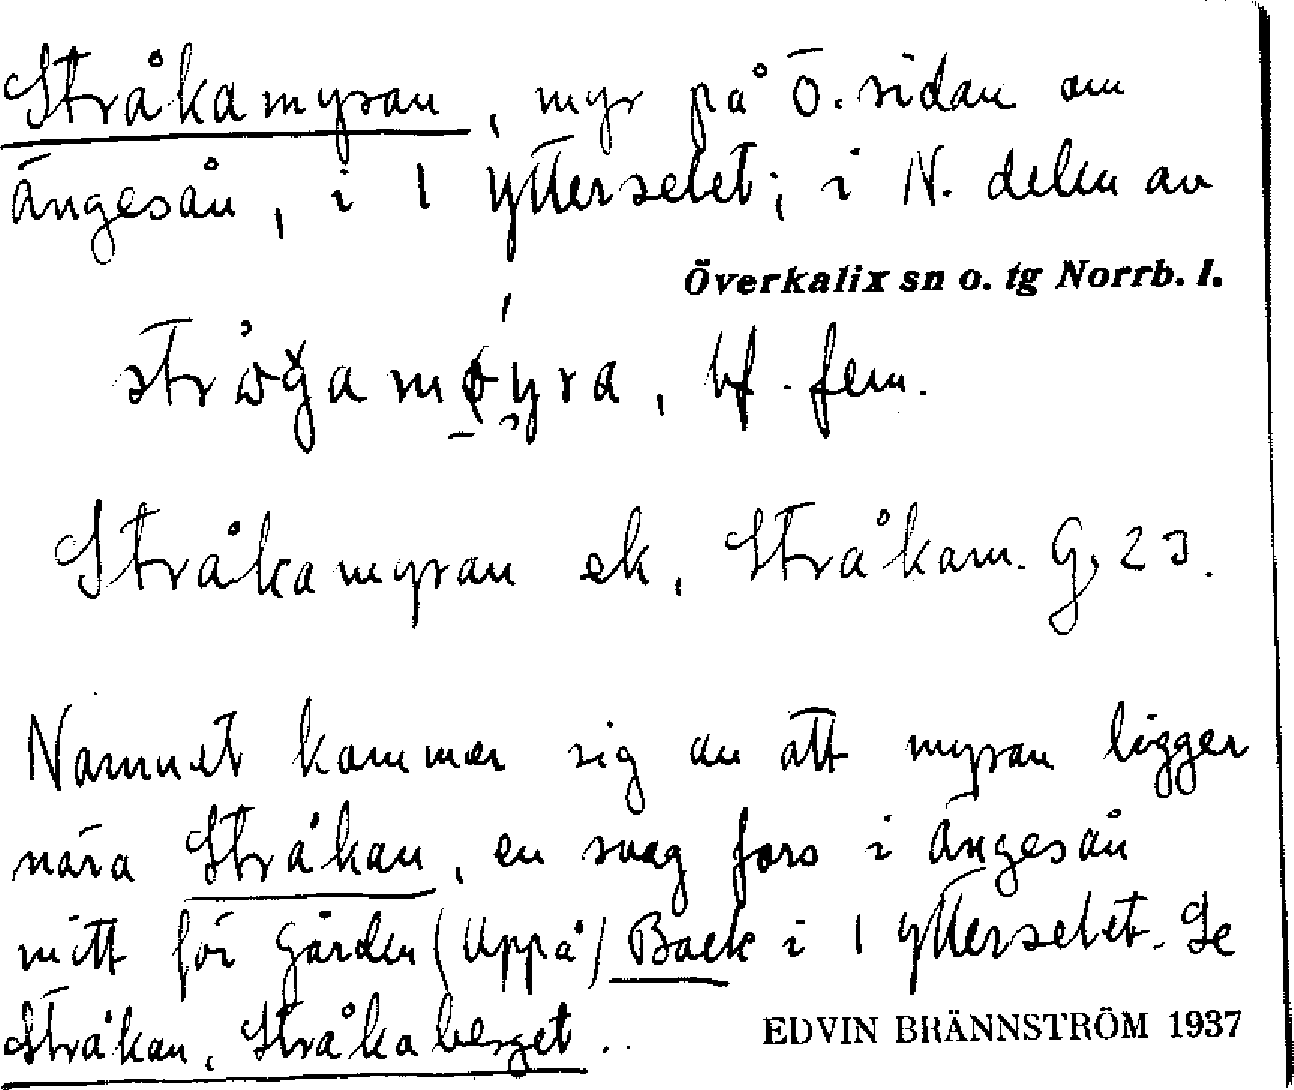 Stråkamyran, myr på ö. sidan om
ängesån, i 1 ytterselet; i N. delen av
Överkalix sn o. tg Norrb. l.
bf. fem.
Stråkamyran ek, Stråkam. G, 23.
Namnet kommer sig av att myran ligger
nära Stråkan, en svag fors i ängesån
mitt för gården (Uppå) Back i 1 ytterselet. Se
Stråkan, Stråkaberget.
EDVIN BRÄNNSTRÖM 1937